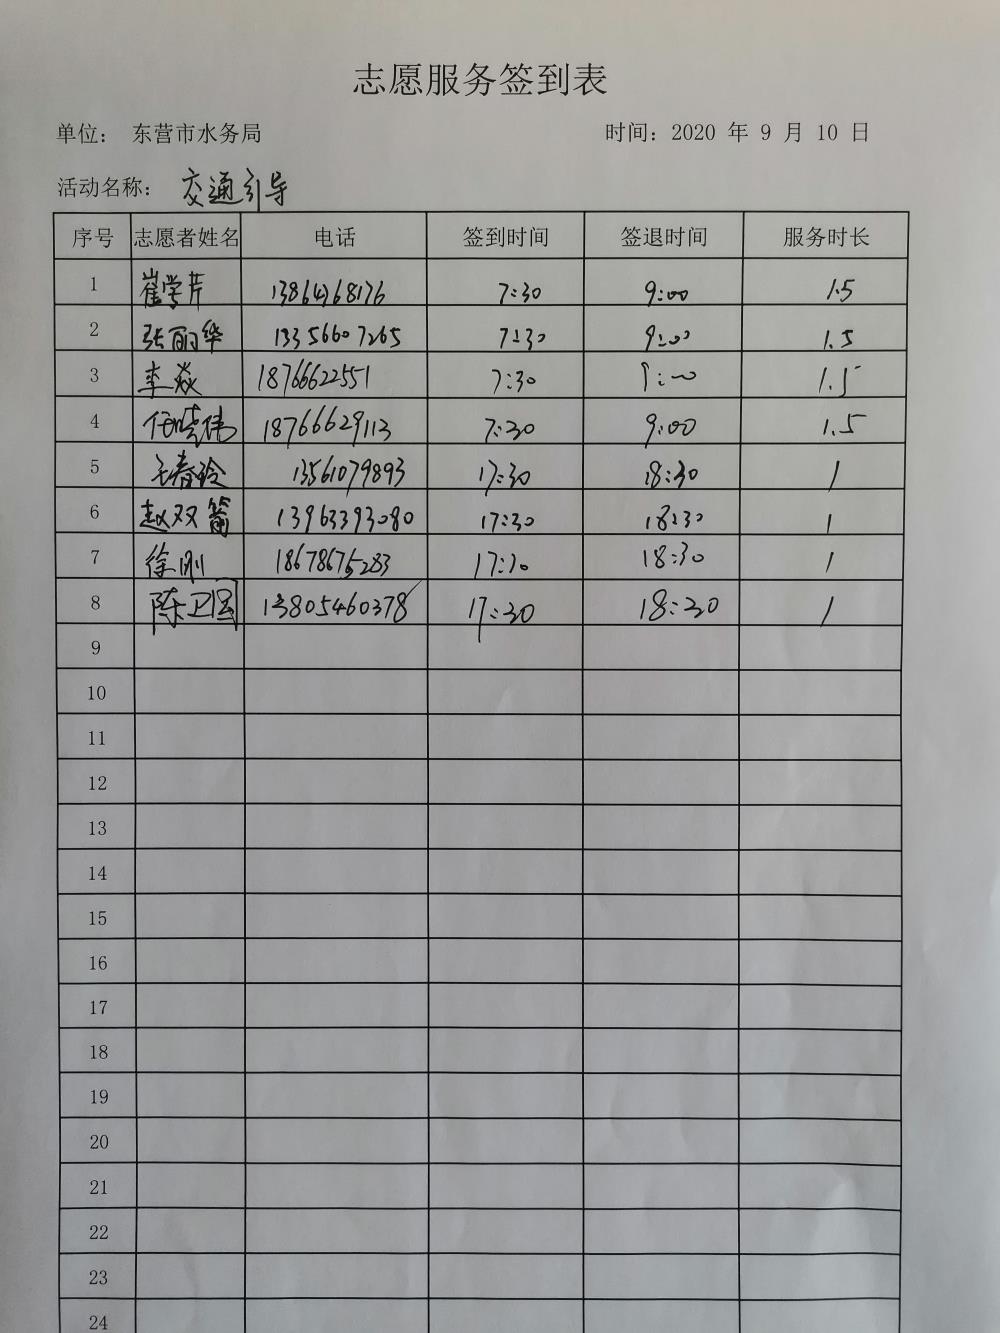 志愿服务签到表
单位: 东营市水务局 时间: 2020 年 9 月 10 日
活动名称: 交通引导
序号 志愿者姓名 电话 签到时间 签退时间 服务时长
1 崔学芹 13864368176 7:30 9:00 1.5
2 张丽华 13356607265 7:30 9:00 1.5
3 李焱 18766622551 7:30 9:00 1.5
4 任晓伟 18766629113 7:30 9:00 1.5
5 王春玲 13561079893 17:30 18:30 1
6 赵双 13963393080 17:30 18:30 1
7 徐刚 18678675283 17:30 18:30 1
8 陈卫国 13805460378 17:30 18:30 1
9
10
11
12
13
14
15
16
17
18
19
20
21
22
23
24